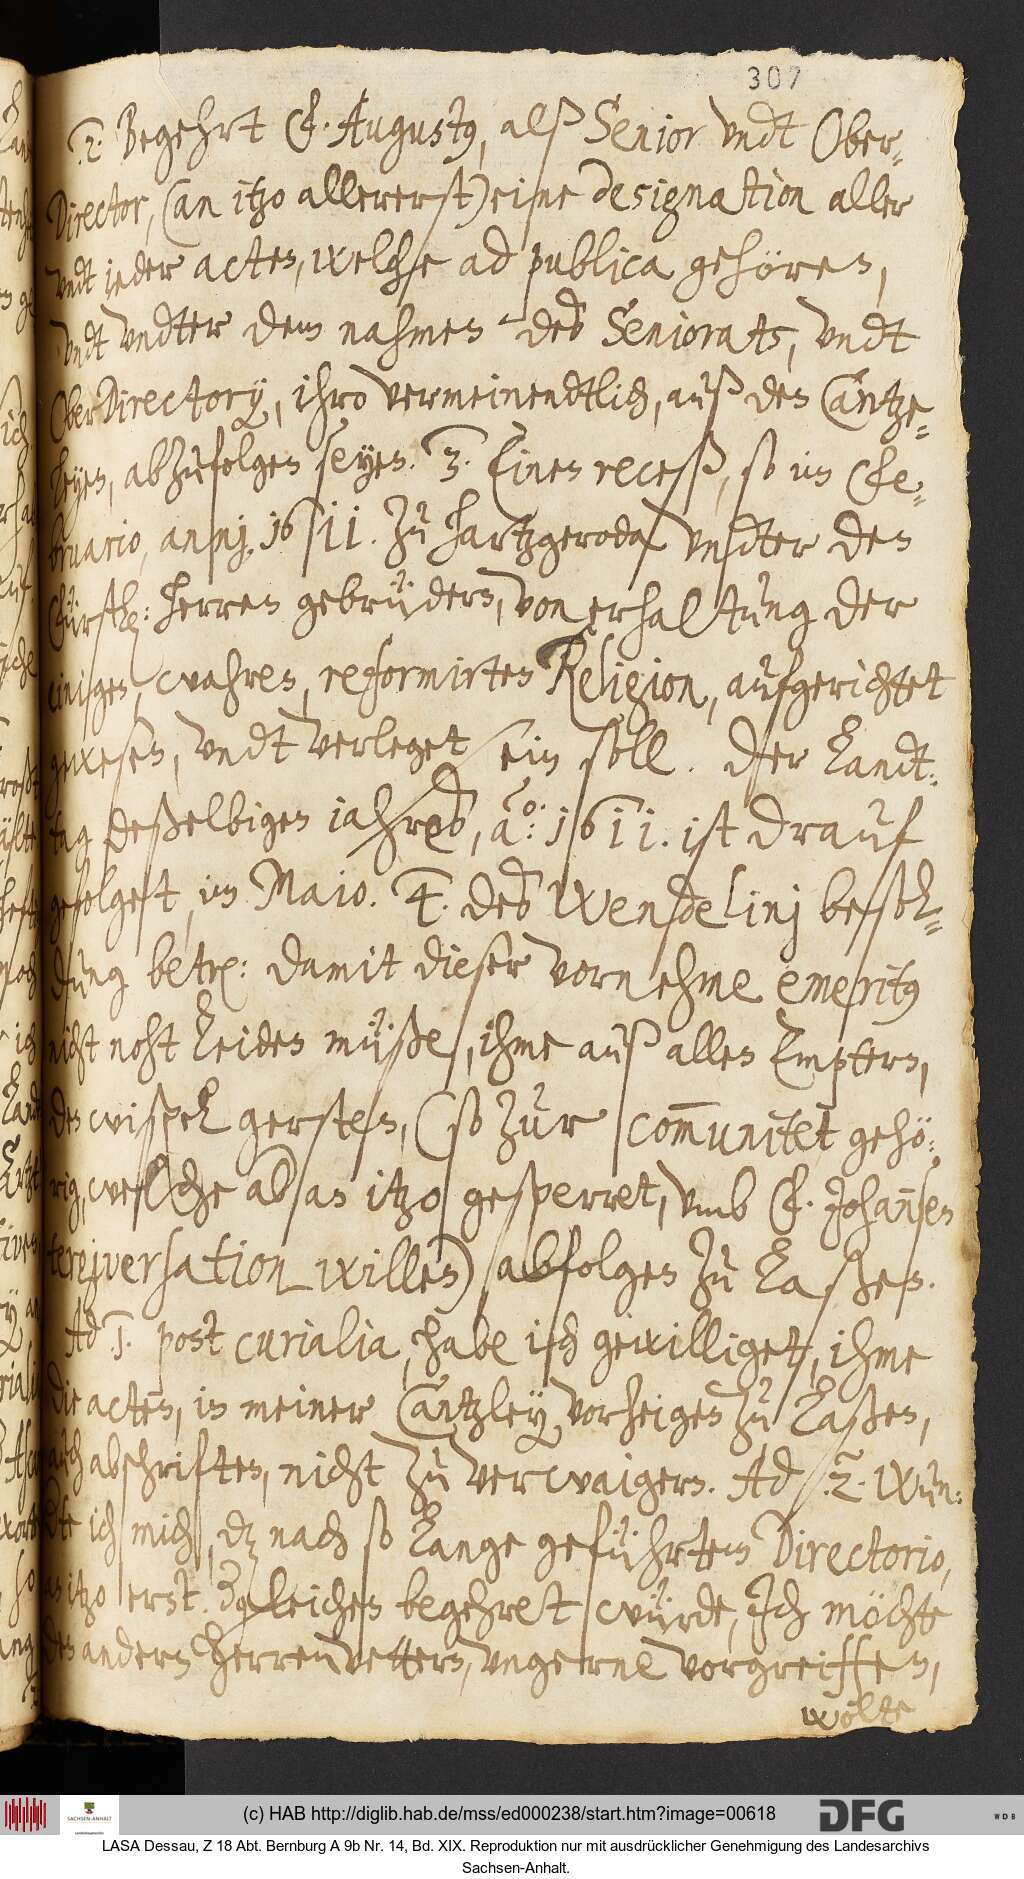 307
.2. Begehrt F. Augustg, alß Senior vndt Ober-
Director, (an itzo allererst) eine designation aller
vndt ieder acten, welche ad publica gehören,
vndt vndter dem nahmen des Seniorats, vndt
OberDirectorij, ihro vermeinendtlich, auß den Cantze-
leyen, abzufolgen seyen. 3. Einen receß, so im Fe-
bruario, annj, 1611. zu Hartzgeroda vndter den
Fürstl: Herren gebrüdern, von erhaltung der
einigen, wahren, reformirten Religion, aufgerichtet
gewesen, vndt verleget sein soll. Der Landt-
tag deßelbigen iahres, ao: 1611. ist drauf
gefolget, im Majo. 4. des Wendelinj besol-
dung betr: damit dieser vornehme emeritg
nicht noht leiden müße, ihme auß allen Emptern,
den wispel gersten, (so zur communitet gehö-
rig, welche alda an itzo gesperret, vmb F. Johansen
tergiversation willen) abfolgen zu laßen.
Ad 1. post curialia, habe ich gewilliget, ihme
die acten, in meiner Cantzley vorzeigen zu laßen,
auch abschriften, nicht zu verwaigern. Ad .2. wun-
dte ich mich, dz nach so lange geführtem Directorio,
an itzo erst dgleichen begehret würde, Ich möchte
den andern Herrenvettern, vngerne vorgreiffen,
wolte
(c) HAB http://diglib.hab.de/mss/ed000238/start.htm?image=00618
SACHSEN-ANHALT
DFG
WDB
LASA Dessau, Z 18 Abt. Bernburg A 9b Nr. 14, Bd. XIX. Reproduktion nur mit ausdrücklicher Genehmigung des Landesarchivs
Sachsen-Anhalt.